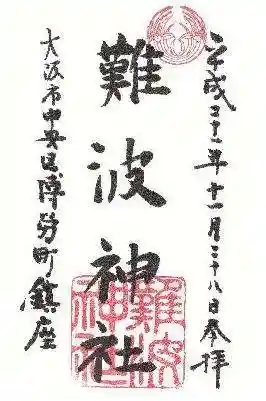 平成二十一年十一月二十八日参拝
難波神社
大阪市中央区博労町鎮座
難波神社